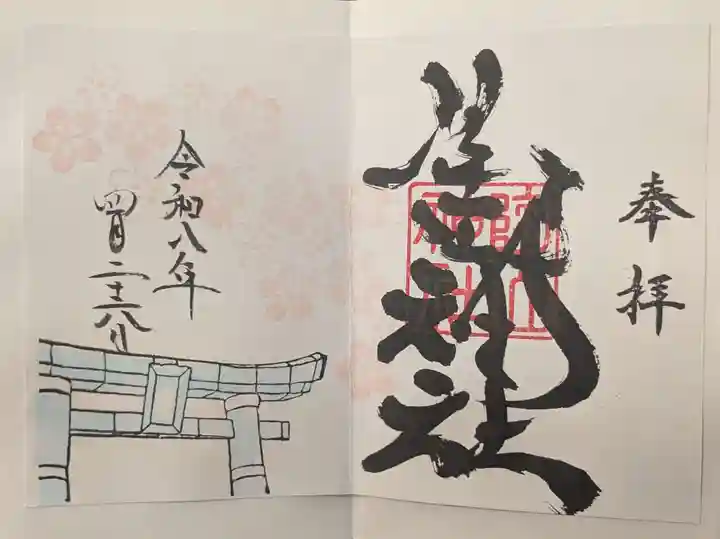 奉拝
陶山神社
令和八年
四月二十八日